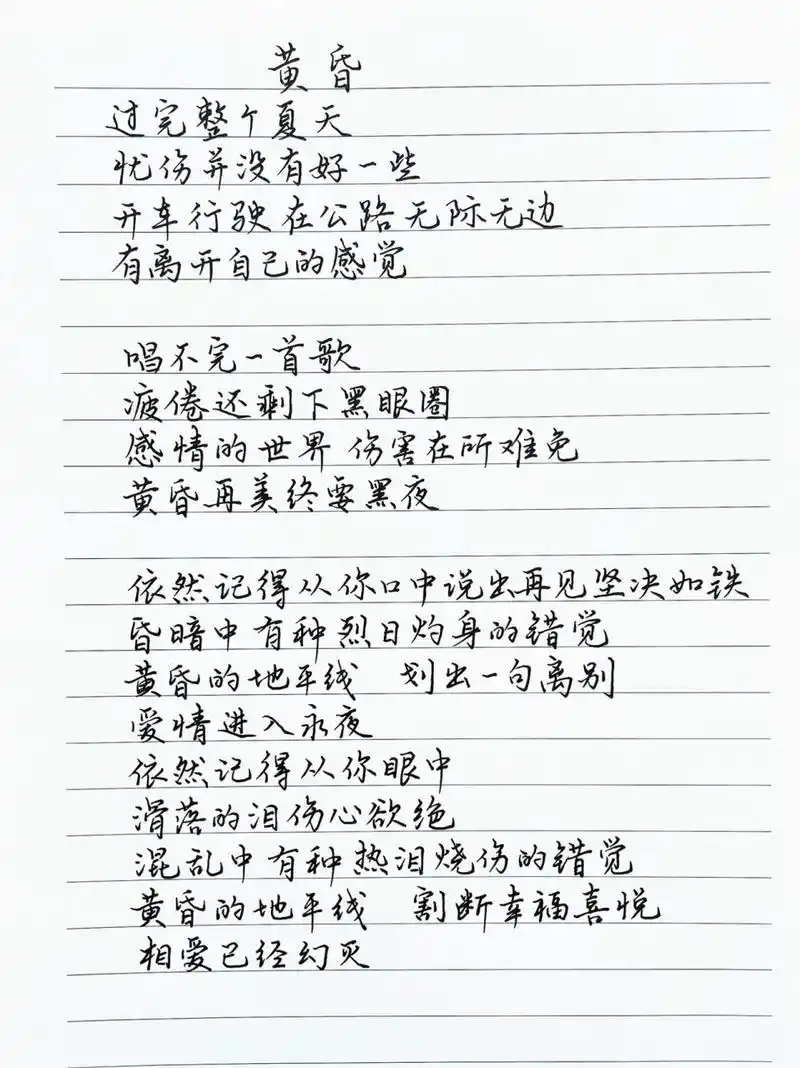 黄昏
过完整个夏天
忧伤并没有好一些
开车行驶在公路无际无边
有离开自己的感觉
唱不完一首歌
疲倦还剩下黑眼圈
感情的世界 伤害在所难免
黄昏再美终要黑夜
依然记得从你口中说出再见坚决如铁
昏暗中有种烈日灼身的错觉
黄昏的地平线 划出一句离别
爱情进入永夜
依然记得从你眼中
滑落的泪伤心欲绝
混乱中有种热泪烧伤的错觉
黄昏的地平线 割断幸福喜悦
相爱已经幻灭